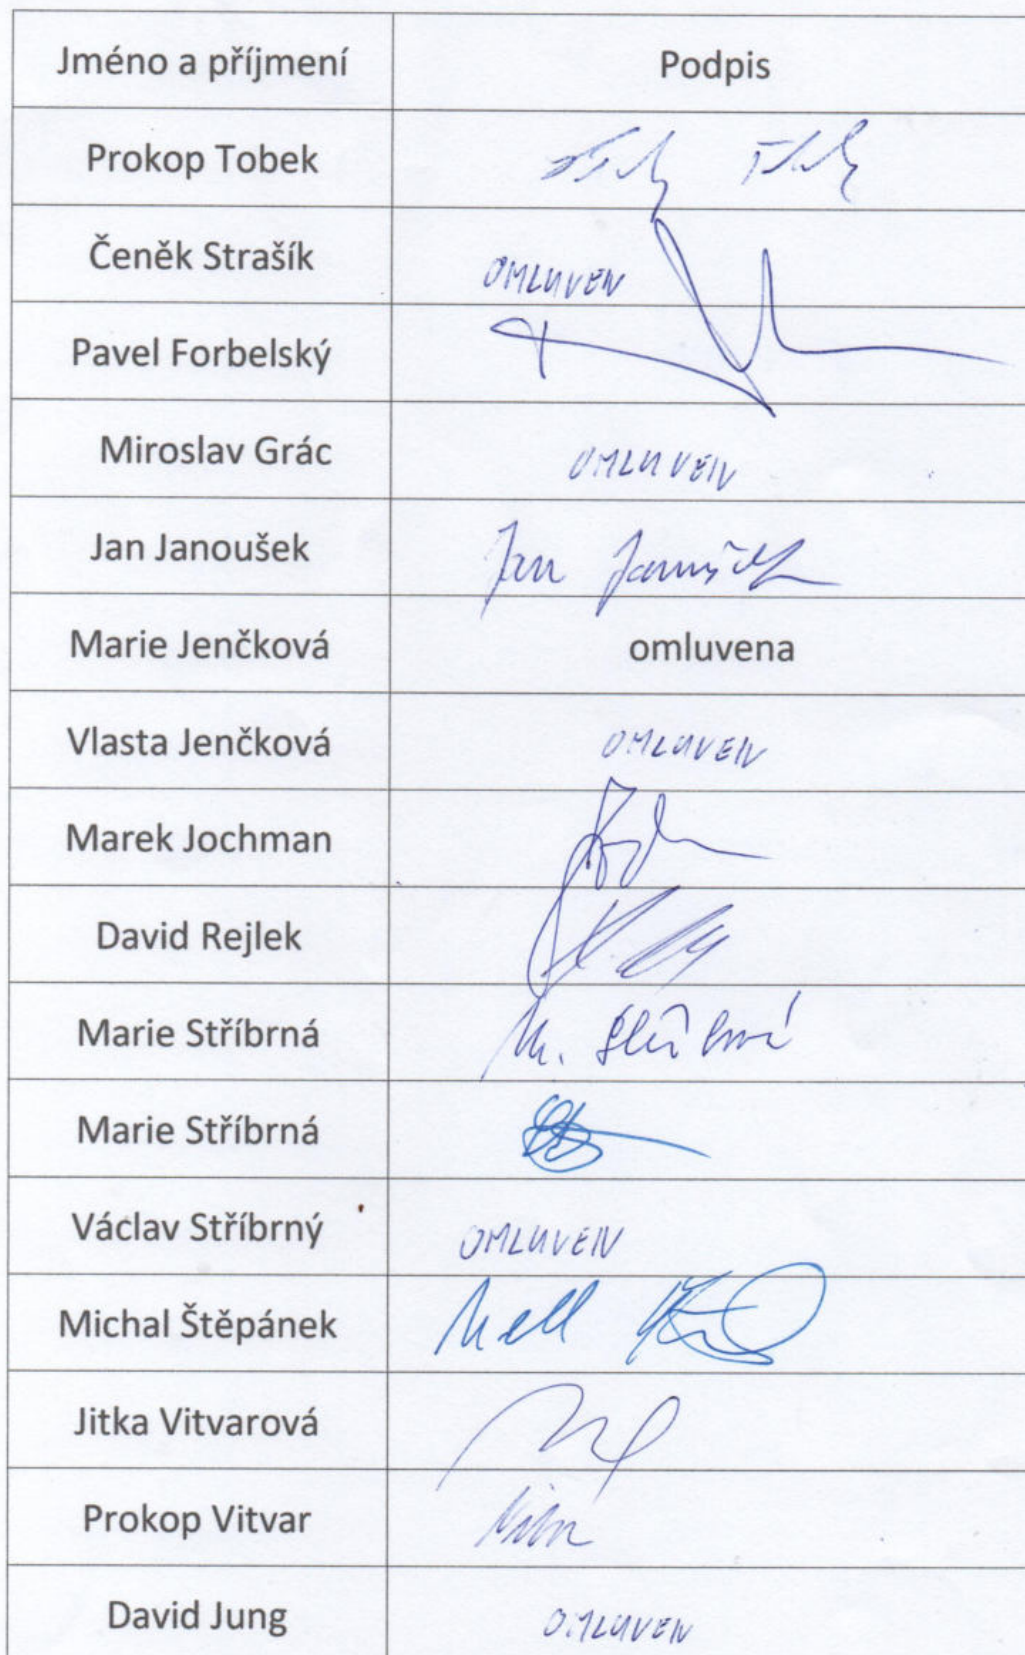 Jméno a příjmení Podpis
Prokop Tobek
Čeněk Strašík OMLUVEN
Pavel Forbelský
Miroslav Grác OMLUVEN
Jan Janoušek Jan Janoušek
Marie Jenčková omluvena
Vlasta Jenčková OMLUVEN
Marek Jochman
David Rejlek
Marie Stříbrná M. Stříbrná
Marie Stříbrná
Václav Stříbrný OMLUVEN
Michal Štěpánek
Jitka Vitvarová
Prokop Vitvar
David Jung OMLUVEN